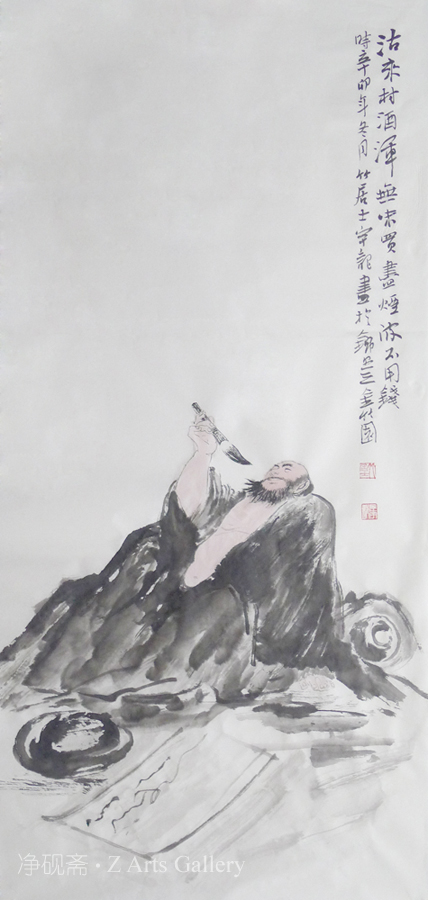 沽来村酒浑無味買盡煙波不用錢
時辛卯年冬月竹居士宇龍畫於錦
金竹園
净砚斋·Z Arts Gallery